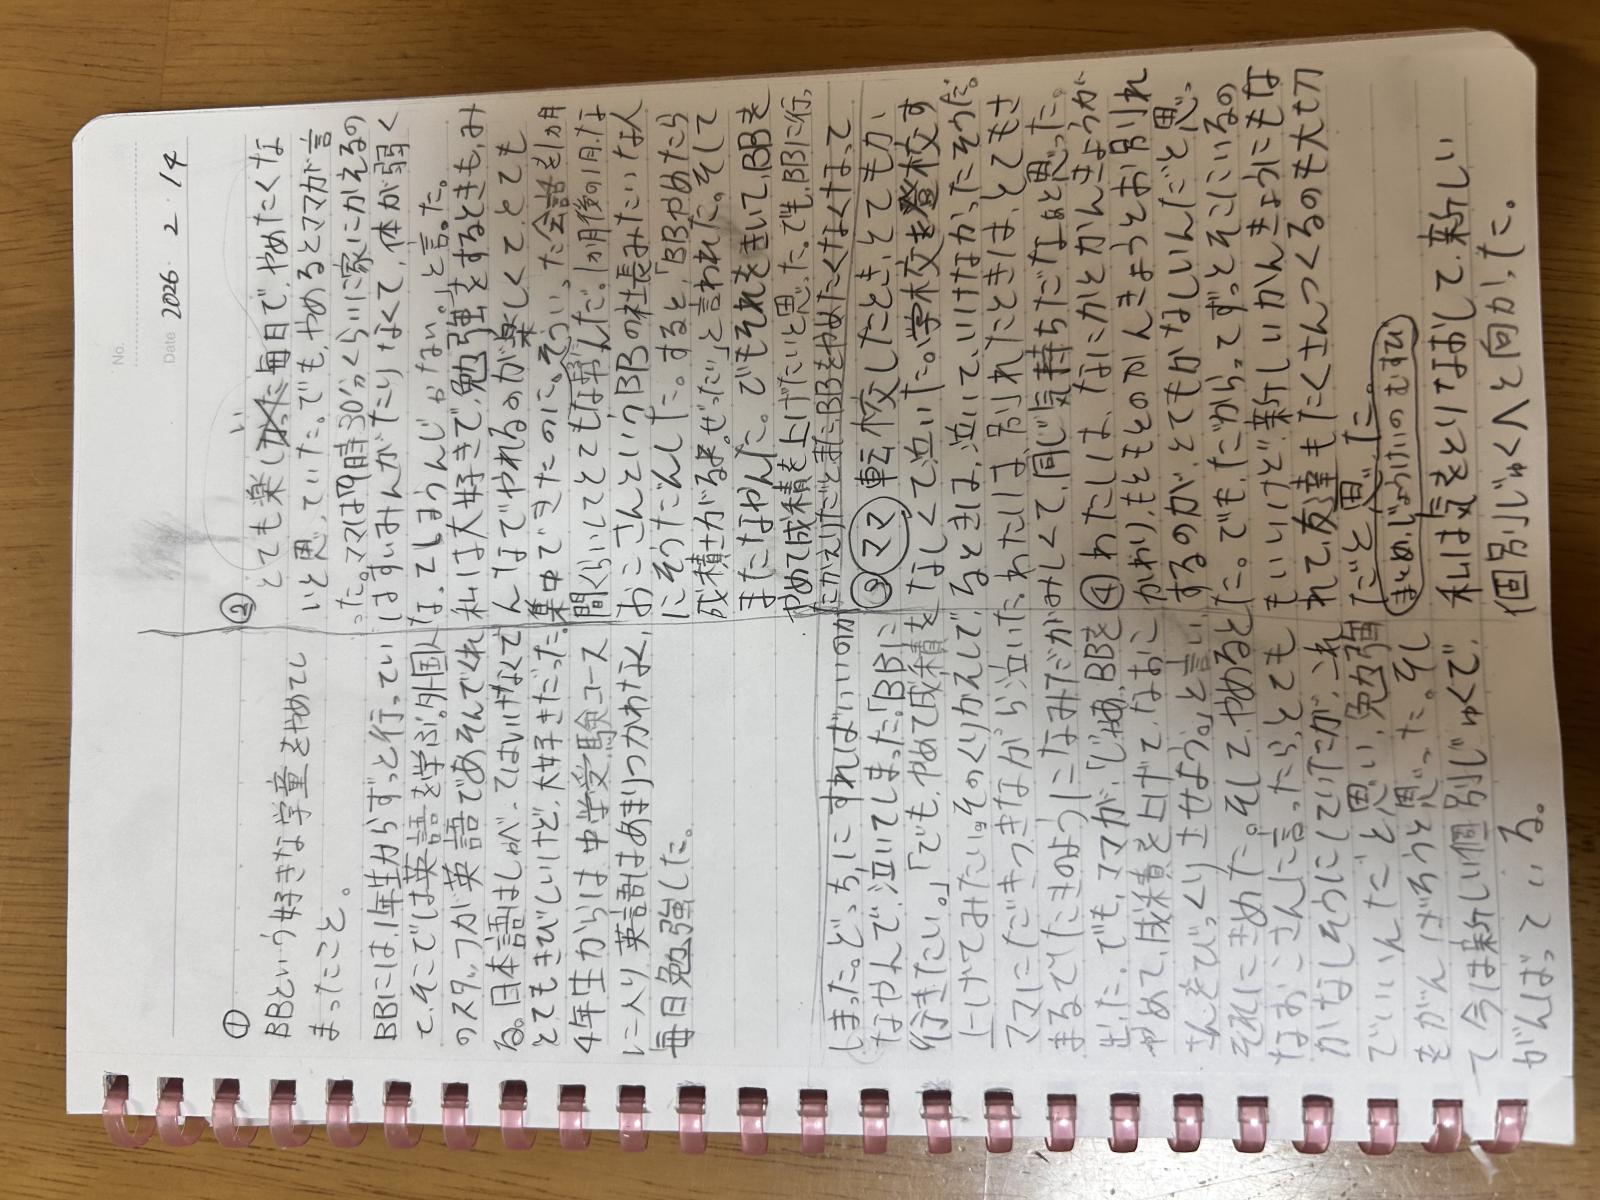 No.
Date 2026・2・14
①
BBという好きな学童をやめてし
まったこと。
BBには1年生からずっと行ってい
て、そこでは英語を学ぶ。外国人
のスタッフが英語であそんでくれ
る。日本語はしゃべってはいけなくて
とてもきびしいけど、大好きだった。
4年生からは中学受験コース
に入り、英語はあまりつかわなく、
毎日勉強した。
②
とても楽しい毎日で、やめたくな
いと思っていた。でも、やめるとママが言
った。ママは9時30分くらいに家にかえるの
はすいみんがたりなくて、体が弱く
なってしまうんじゃない。」と言った。
私は大好きで、勉強をするときも、み
んなでやれるのが楽しくて、とても
集中できたのに。そういった会話を1ヵ月
間くらいしてとてもなやんだ。1ヵ月後の1月、な
おこさんというBBの社長みたいな人
にそうだんした。すると、「BBやめたら
成績上がるよ。ぜったい」と言われた。そして
またなやんだ。でもそれをきいて、BBを
やめて成績を上げたいと思った。でも、BBに行
にかえりだとまた、BBをやめたくなくなって
しまった。どっちにすればいいのか
なやんで、泣いてしまった。「BBに
行きたい。」「でも、やめて成績を
上げてみたい。」そのくりかえしで
ママにだきつきながら泣いた。
まるでたきのようになみだが
出た。でも、ママが、「じゃあ、BBを
やめて、成績を上げて、なおこ
さんをびっくりさせよう。」と言い、
それにきめた。そして、やめると
なおこさんに言ったら、とても
かなしそうにしていたが、これ
でいいんだと思い、勉強
をがんばろうと思った。そし
て今は新しい個別じゅくで、
がんばっている。
③ママ 転校したとき、とてもか
なしくて泣いた。学校を登校す
るときは、泣いて、いけなかったそうだ。
わたしは、別れたときは、とてもさ
みしくて、同じ気持ちだなぁと思った。
④わたしは、なにかとかんきょうが
かわり、もともとのかんきょうとお別れ
するのが、とてもかなしいんだと思っ
た。でも、だからってずっとそこにいるの
もいいけど、新しいかんきょうにもな
れて、友達もたくさんつくるのも大切
だと思った。
まとめ、じょうけいのむすび
私は気をとりなおして、新しい
個別じゅくへと向かった。